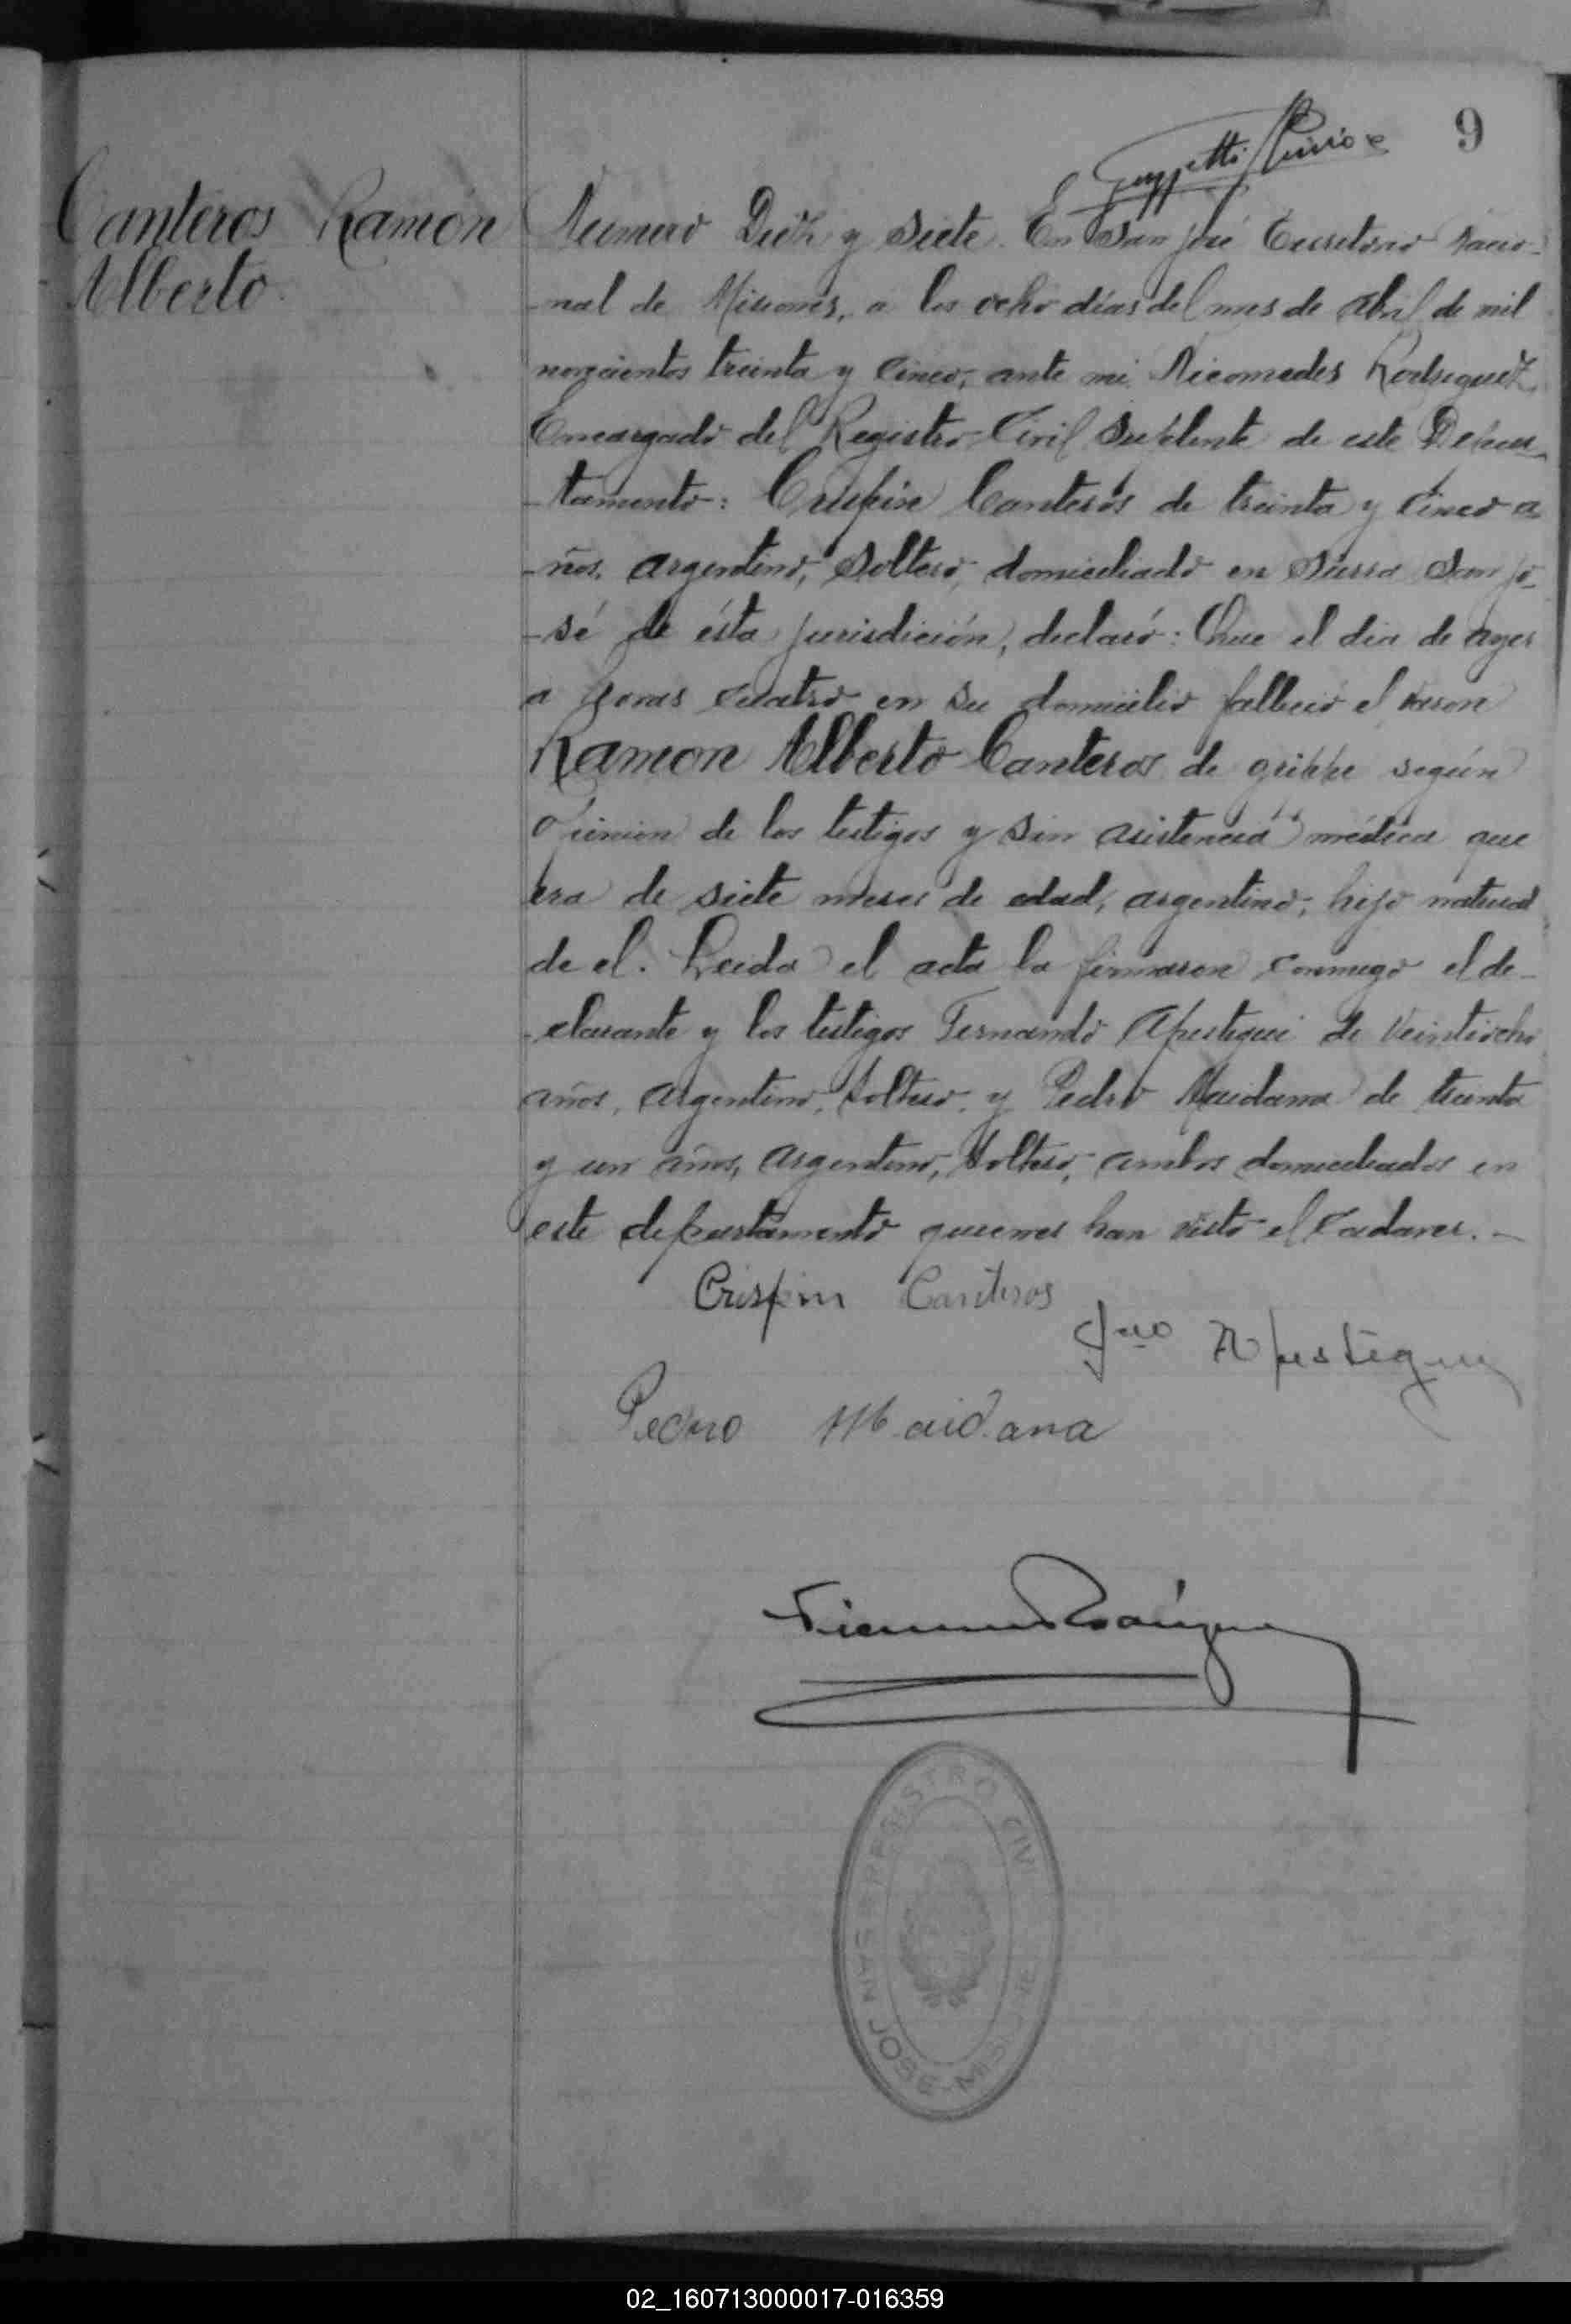 9
Canteros Ramón
Alberto
Número Diez y siete. En San José Territorio Nacio-
-nal de Misiones, a los ocho días del mes de abril de mil
novecientos treinta y cinco, ante mi Nicomedes Rodriguez,
Encargado del Registro Civil Suplente de este Depar-
-tamento: Crispin Canteros de treinta y cinco a-
-ños, argentino, soltero, domiciliado en Sierra San Jo-
-sé de ésta jurisdición, declaró: Que el dia de ayer
a horas cuatro en su domicilio falleció el varon
Ramon Alberto Canteros de grippe según
opinion de los testigos y sin asistencia médica que
era de siete meses de edad, argentino, hijo natural
de el. Leida el acta la firmaron conmigo el de-
-clarante y los testigos Fernando Apestegui de veintiocho
años, argentino, soltero, y Pedro Maidana de treinta
y un años, argentino, soltero, ambos domiciliados en
este departamento quienes han visto el cadaver. -
Crispin Canteros
Fdo Apestegui
Pedro Maidana
REGISTRO CIVIL
SAN JOSE - MISIONES
02_160713000017-016359